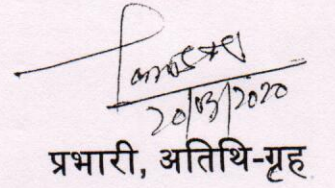 20/03/2020
प्रभारी, अतिथि-गृह